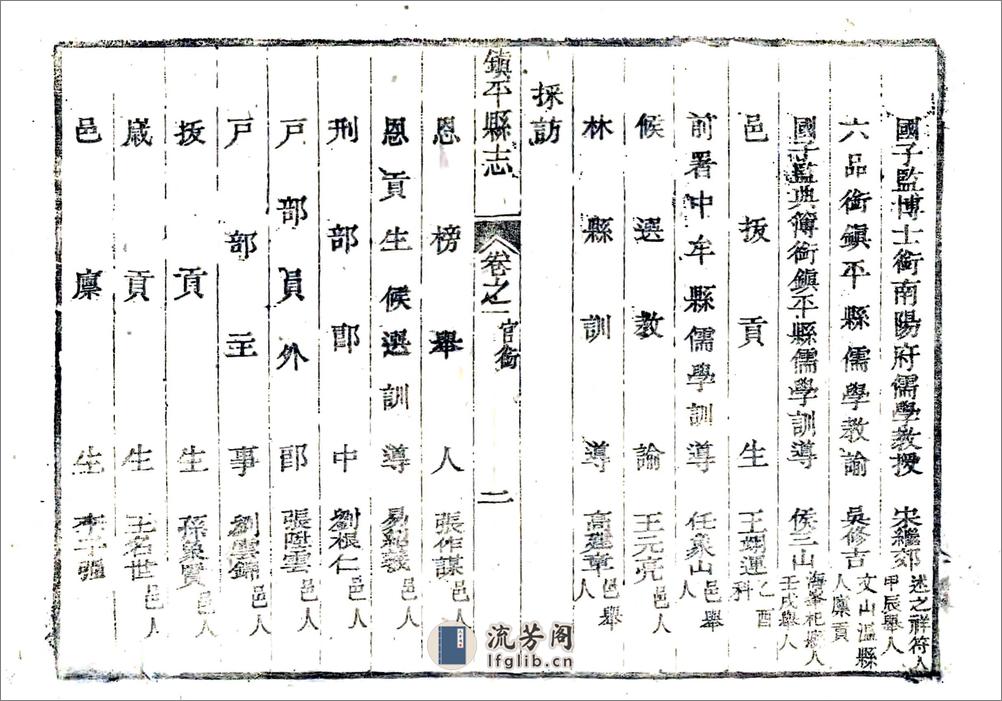 國子監博士銜南陽府儒學教授 宋繼郊 述之祥符人甲辰舉人
六品銜鎮平縣儒學教諭 吳修吉 文山溫縣人廩貢
國子監典簿銜鎮平縣儒學訓導 侯三山 海峯杞縣人壬戌舉人
邑拔貢生 王翊運 乙酉科
前署中牟縣儒學訓導 任象山 邑舉人
候選教諭 王元亮 邑人
林縣訓導 高建章 邑舉人
採訪
鎮平縣志 卷之一 官銜 二
恩榜舉人 張作謀 邑人
恩貢生候選訓導 易紹羲 邑人
刑部郎中 劉根仁 邑人
戸部員外郎 張陞雲 邑人
戸部主事 劉雲錦 邑人
拔貢生 孫象賢 邑人
歲貢生 王名世 邑人
邑廩生 李子強
流芳阁
lfglib.cn